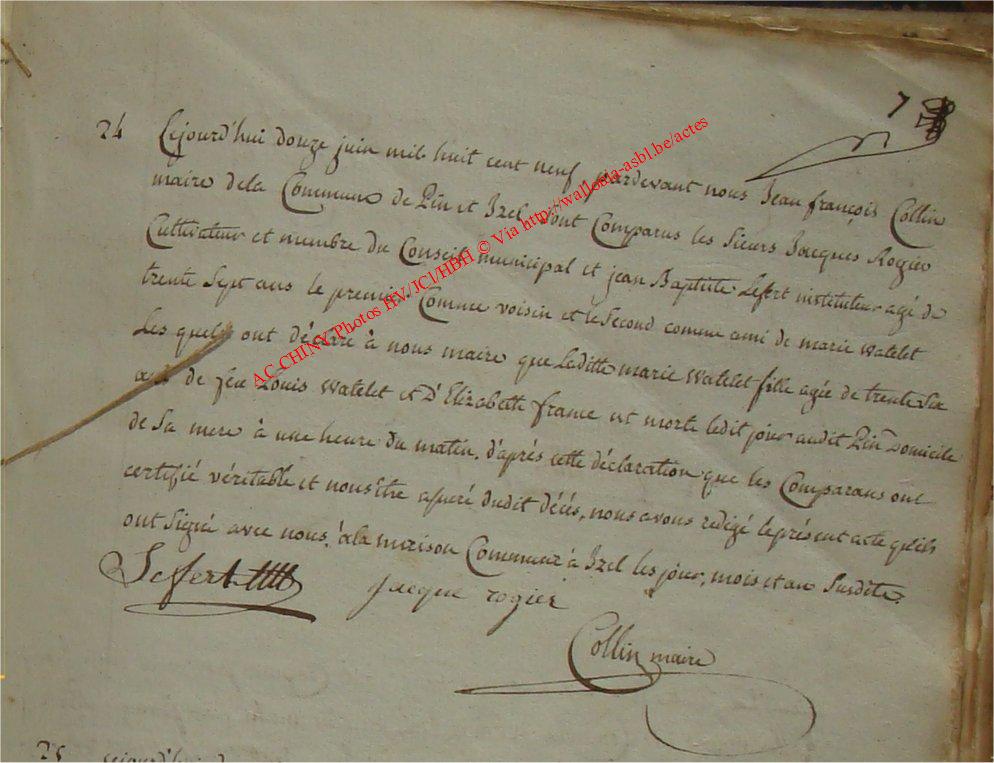 7
24 Cejourd'hui douze juin mil huit cent neuf pardevant nous Jean françois Collin
maire dela Commune de Pin et Izel sont Comparus les Sieurs Jacques Rogier
Cultivateur et membre du Conseil municipal et jean Baptiste Lefert instituteur agé de
trente Sept ans le premier Comme voisin et le Second comme ami de marie Watelet
Les quels ont déclaré à nous maire que Laditte marie Watelet fille agée de trente Six
ans de feu Louis Watelet et D'Elizabette france est morte ledit jour audit Pin Domicile
de Sa mere à une heure du matin. d'après cette déclaration que les Comparans ont
certifié véritable et nous être assuré dudit décés, nous avons redigé leprésent acte qu'ils
ont Signé avec nous, à la maison Commune à Izel les jour, mois et an Susdits.
Leffert jacque rogier
Collin maire
25 cejourd'hui
AC CHINY Photos HV/JCl/HBH © Via http://wallonia-asbl.be/actes